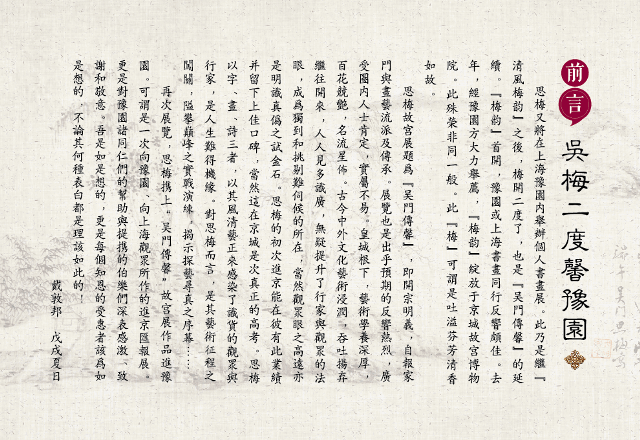 前言
吳梅二度馨豫園
思梅又將在上海豫園內舉辦個人書畫展。此乃是繼『
清風梅韵』之後，梅開二度了，也是『吳門傳馨』的延
續。『梅韵』首開，豫園或上海書畫同行反響頗佳。去
年，經豫園方大力舉薦，『梅韵』綻放于京城故宮博物
院。此殊榮非同一般。此『梅』可謂是吐溢芬芳清香
如故。
思梅故宮展題為『吳門傳馨』，即開宗明義，自報家
門與畫藝流派及傳承。展覽也是出乎預期的反響熱烈，廣
受圈內人士肯定，實屬不易。皇城根下，藝術學養深厚，
百花競艷，名流星佈。古今中外文化藝術浸潤，吞吐揚弃
繼往開來，人人見多識廣，無疑提升了行家與觀眾的法
眼，成為獨到和挑剔難伺候的所在，當然觀眾眼之高遠亦
是明識真偽之試金石。思梅的初次進京能在彼有此業績
并留下上佳口碑，當然這在京城是次真正的高考。思梅
以字、畫、詩三者，以其風清藝正來感染了識貨的觀眾與
行家，是人生難得機緣。對思梅而言，是其藝術征程之
闖關，隘攀巔峰之實戰演練。揭示探藝尋真之序幕……
再次展覽，思梅携上。吳門傳馨”故宮展作品進豫
園。可謂是一次向豫園、向上海觀眾所作的進京匯報展。
更是對豫園諸同仁們的幫助與提携的伯樂們深表感激、致
謝和敬意。吾是如是想的，更是每個知恩的受惠者該為如
是想的，不論其何種表白都是理該如此的！
戴敦邦 戊戌夏日